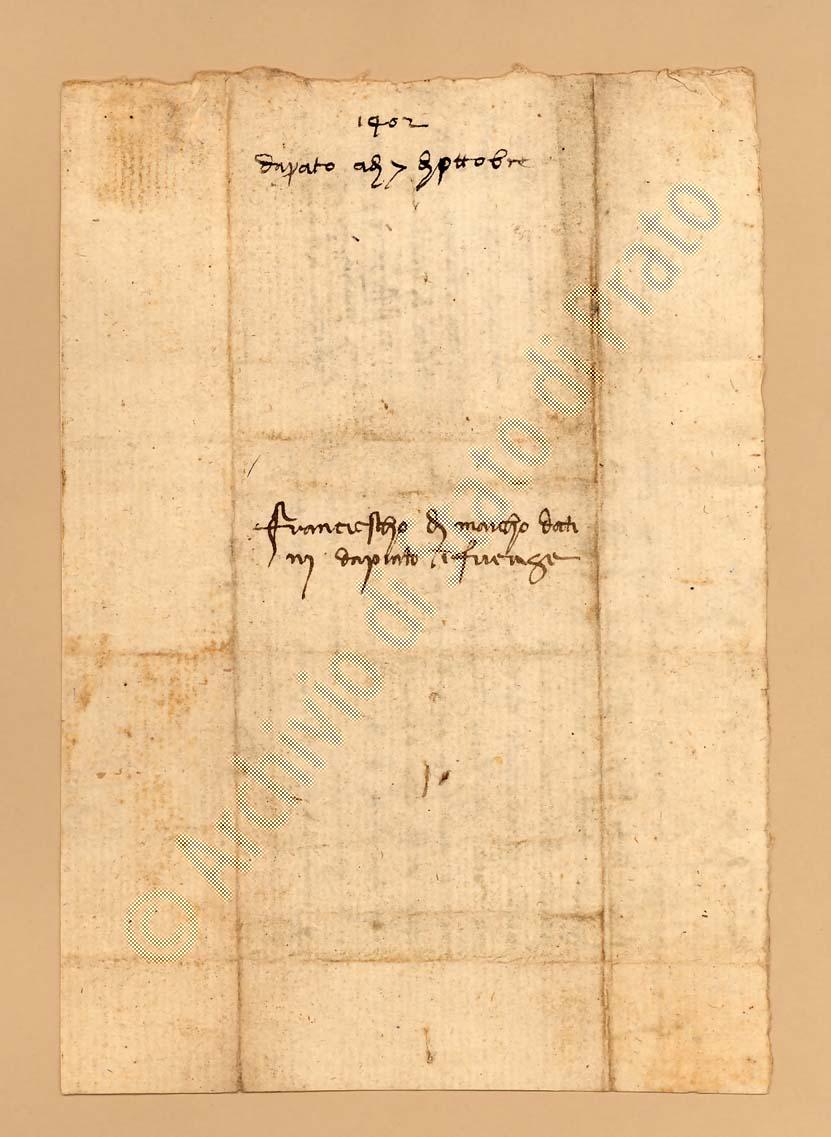 1402
da prato adi 7 di ottobre
Franciescho di marcho dati
ni da prato in firenze
© Archivio di Stato di Prato